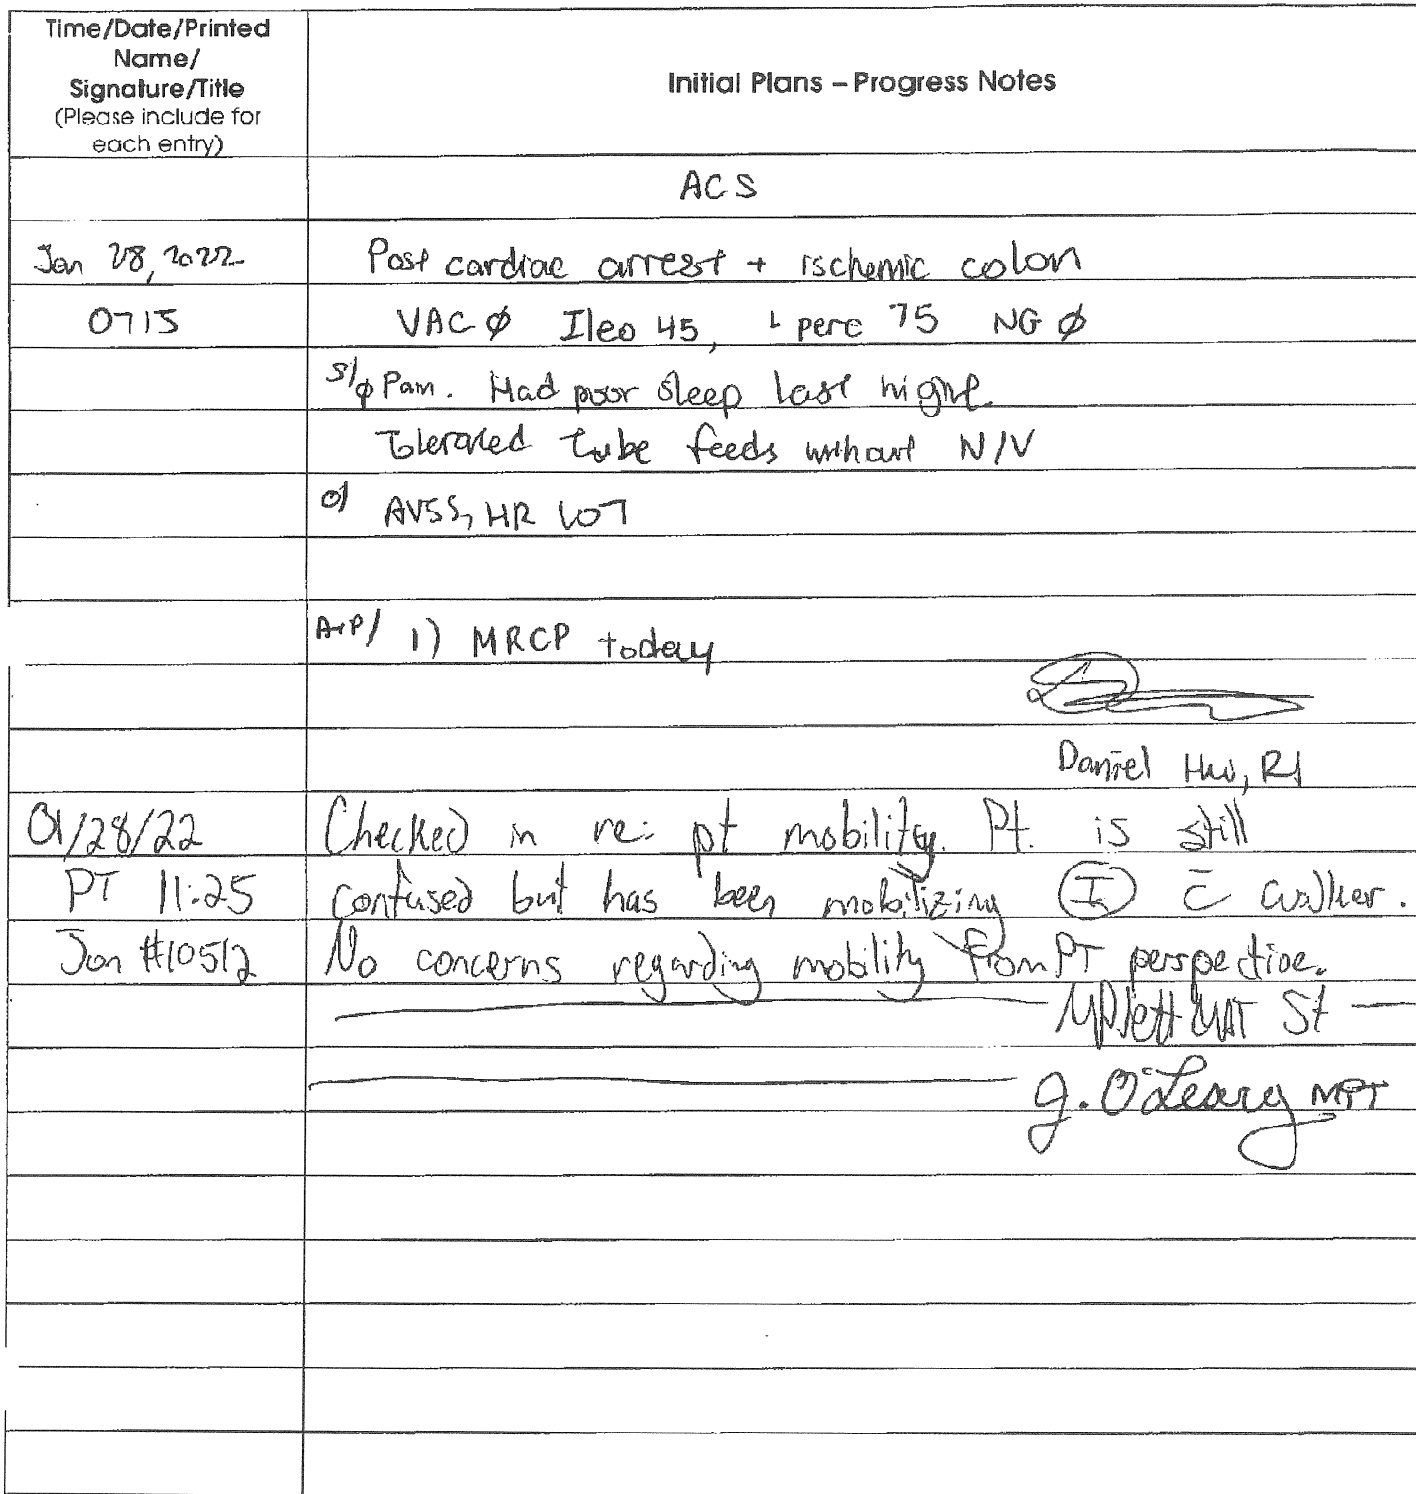 Time/Date/Printed
Name/
Signature/Title
(Please include for
each entry)
Initial Plans – Progress Notes
ACS
Jan 28, 2022
Post cardiac arrest + ischemic colon
0715
VAC ϕ Ileo 45, L perc 75 NG ϕ
S/ ϕ Pain. Had poor sleep last night.
Tolerated tube feeds without N/V
O/ AVSS, HR 107
A+P/ 1) MRCP today
Daniel R1
01/28/22
Checked in re: pt mobility. Pt. is still
PT 11:25
confused but has been mobilizing Ⓘ c̄ walker.
Jon #10512
No concerns regarding mobility from PT perspective.
MPT St
J. O'Leary MPT